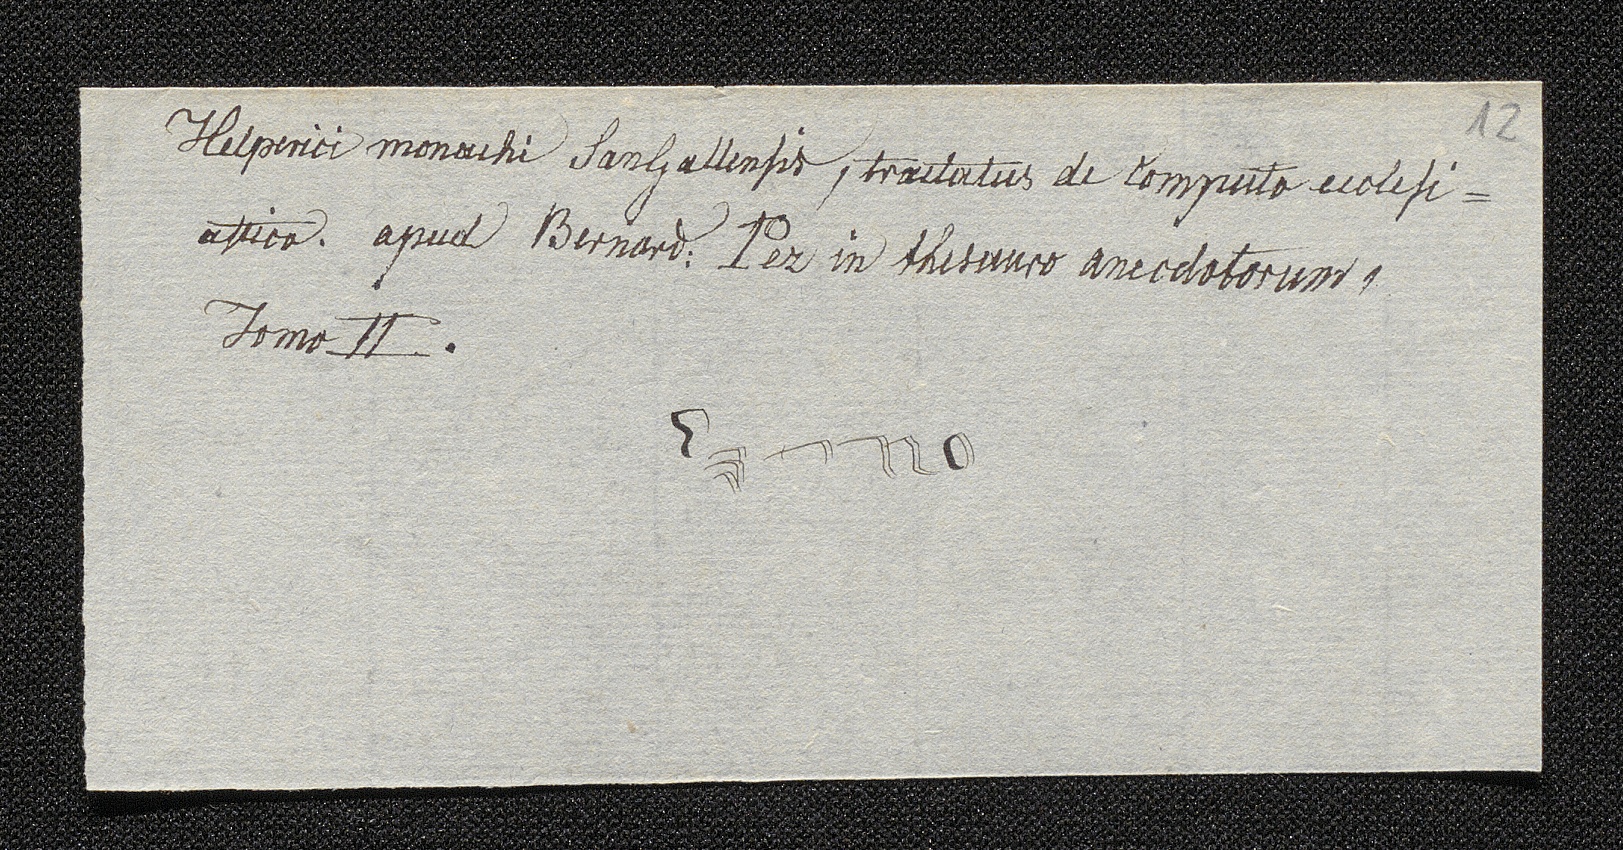 12
Helperici monachi SanGallensis, tractatus de Computo ecclesi=
astico. apud Bernard: Pez in thesauro anecdotorum,
Tomo II.